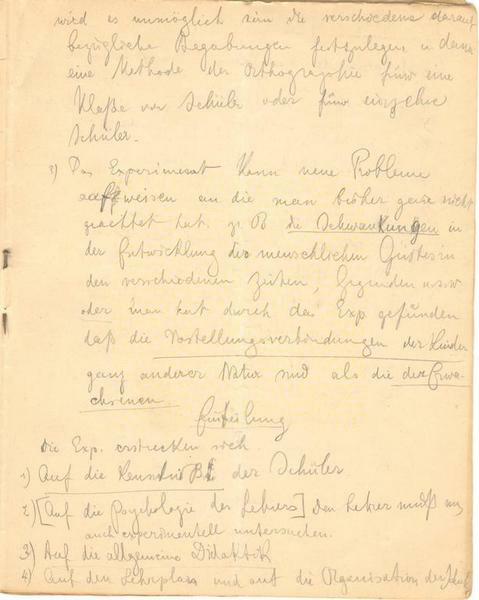 wird es unmöglich sein die verschiedene darauf
bezügliche Begabungen festzulegen u dann
eine Methode der Orthographie für eine
Klaße von Schüler oder für einzelne
Schüler.
3) Das Experiment kann neue Probleme
aufweisen an die man bisher gar nicht
geachtet hat. z. B die Schwankungen in
der Entwicklung des menschlichen Geistes in
den verschiedenen Zeiten, Gegenden usw
oder man hat durch das Exp. gefunden
daß die Vorstellungsverbindungen der Kinder
ganz anderer Natur sind als die der Erwa-
chsenen
Einteilung
Die Exp. erstrecken sich
1) Auf die der Schüler
2) [Auf die Psychologie des Lehrers] Den Lehrer muß man
auch experimentell untersuchen.
3) Auf die allgemeine Didaktik
4) Auf den Lehrplan und auf die Organisation der